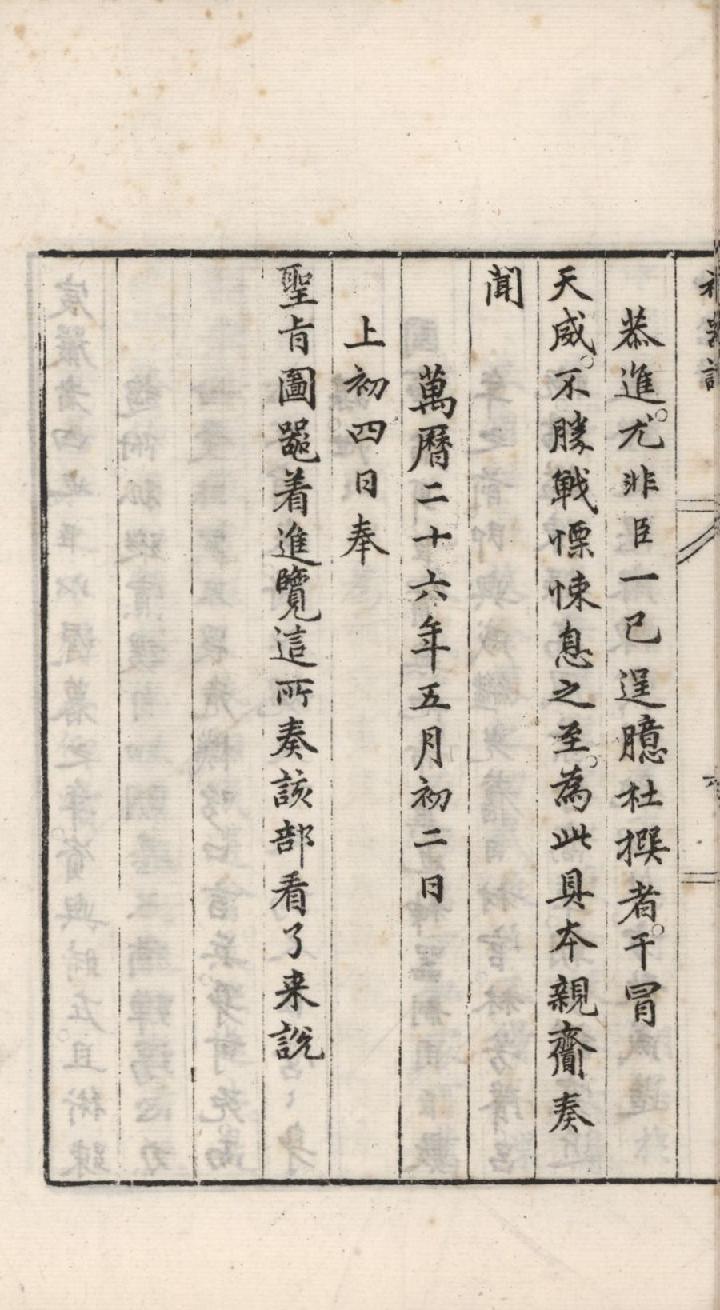 恭進。尤非臣一已逞臆杜撰者。干冐
天威。不勝戰慄悚息之至。為此具本親齎奏
聞
萬曆二十六年五月初二日
上初四日奉
聖旨圖噐着進覽這所奏該部看了来説